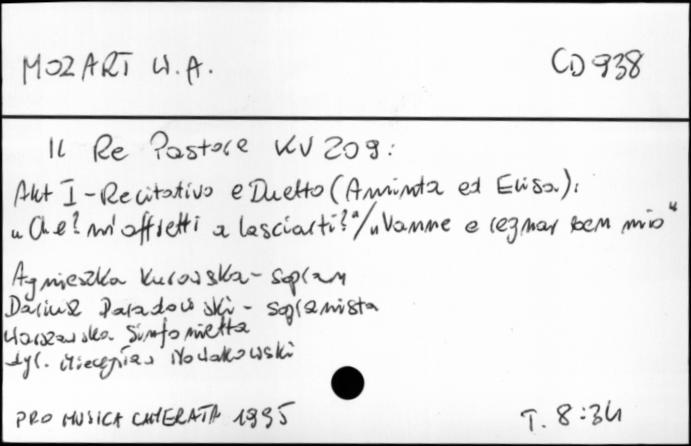 MOZART W.A. CD 938
Il Re Pastore KV 209:
Akt I - Recitativo e Duetto (Aminta ed Elisa):
„Che? m'affretti a lasciarti?"/„Vanne e regnar ben mio"
Agnieszka Kurowska - sopran
Dariusz Paradowski - sopranista
Warszawska Sinfonietta
dyr. Mieczysław Nowakowski
PRO MUSICA CAMERATA 1995 T. 8:34